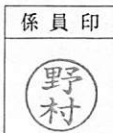 係員印
野村